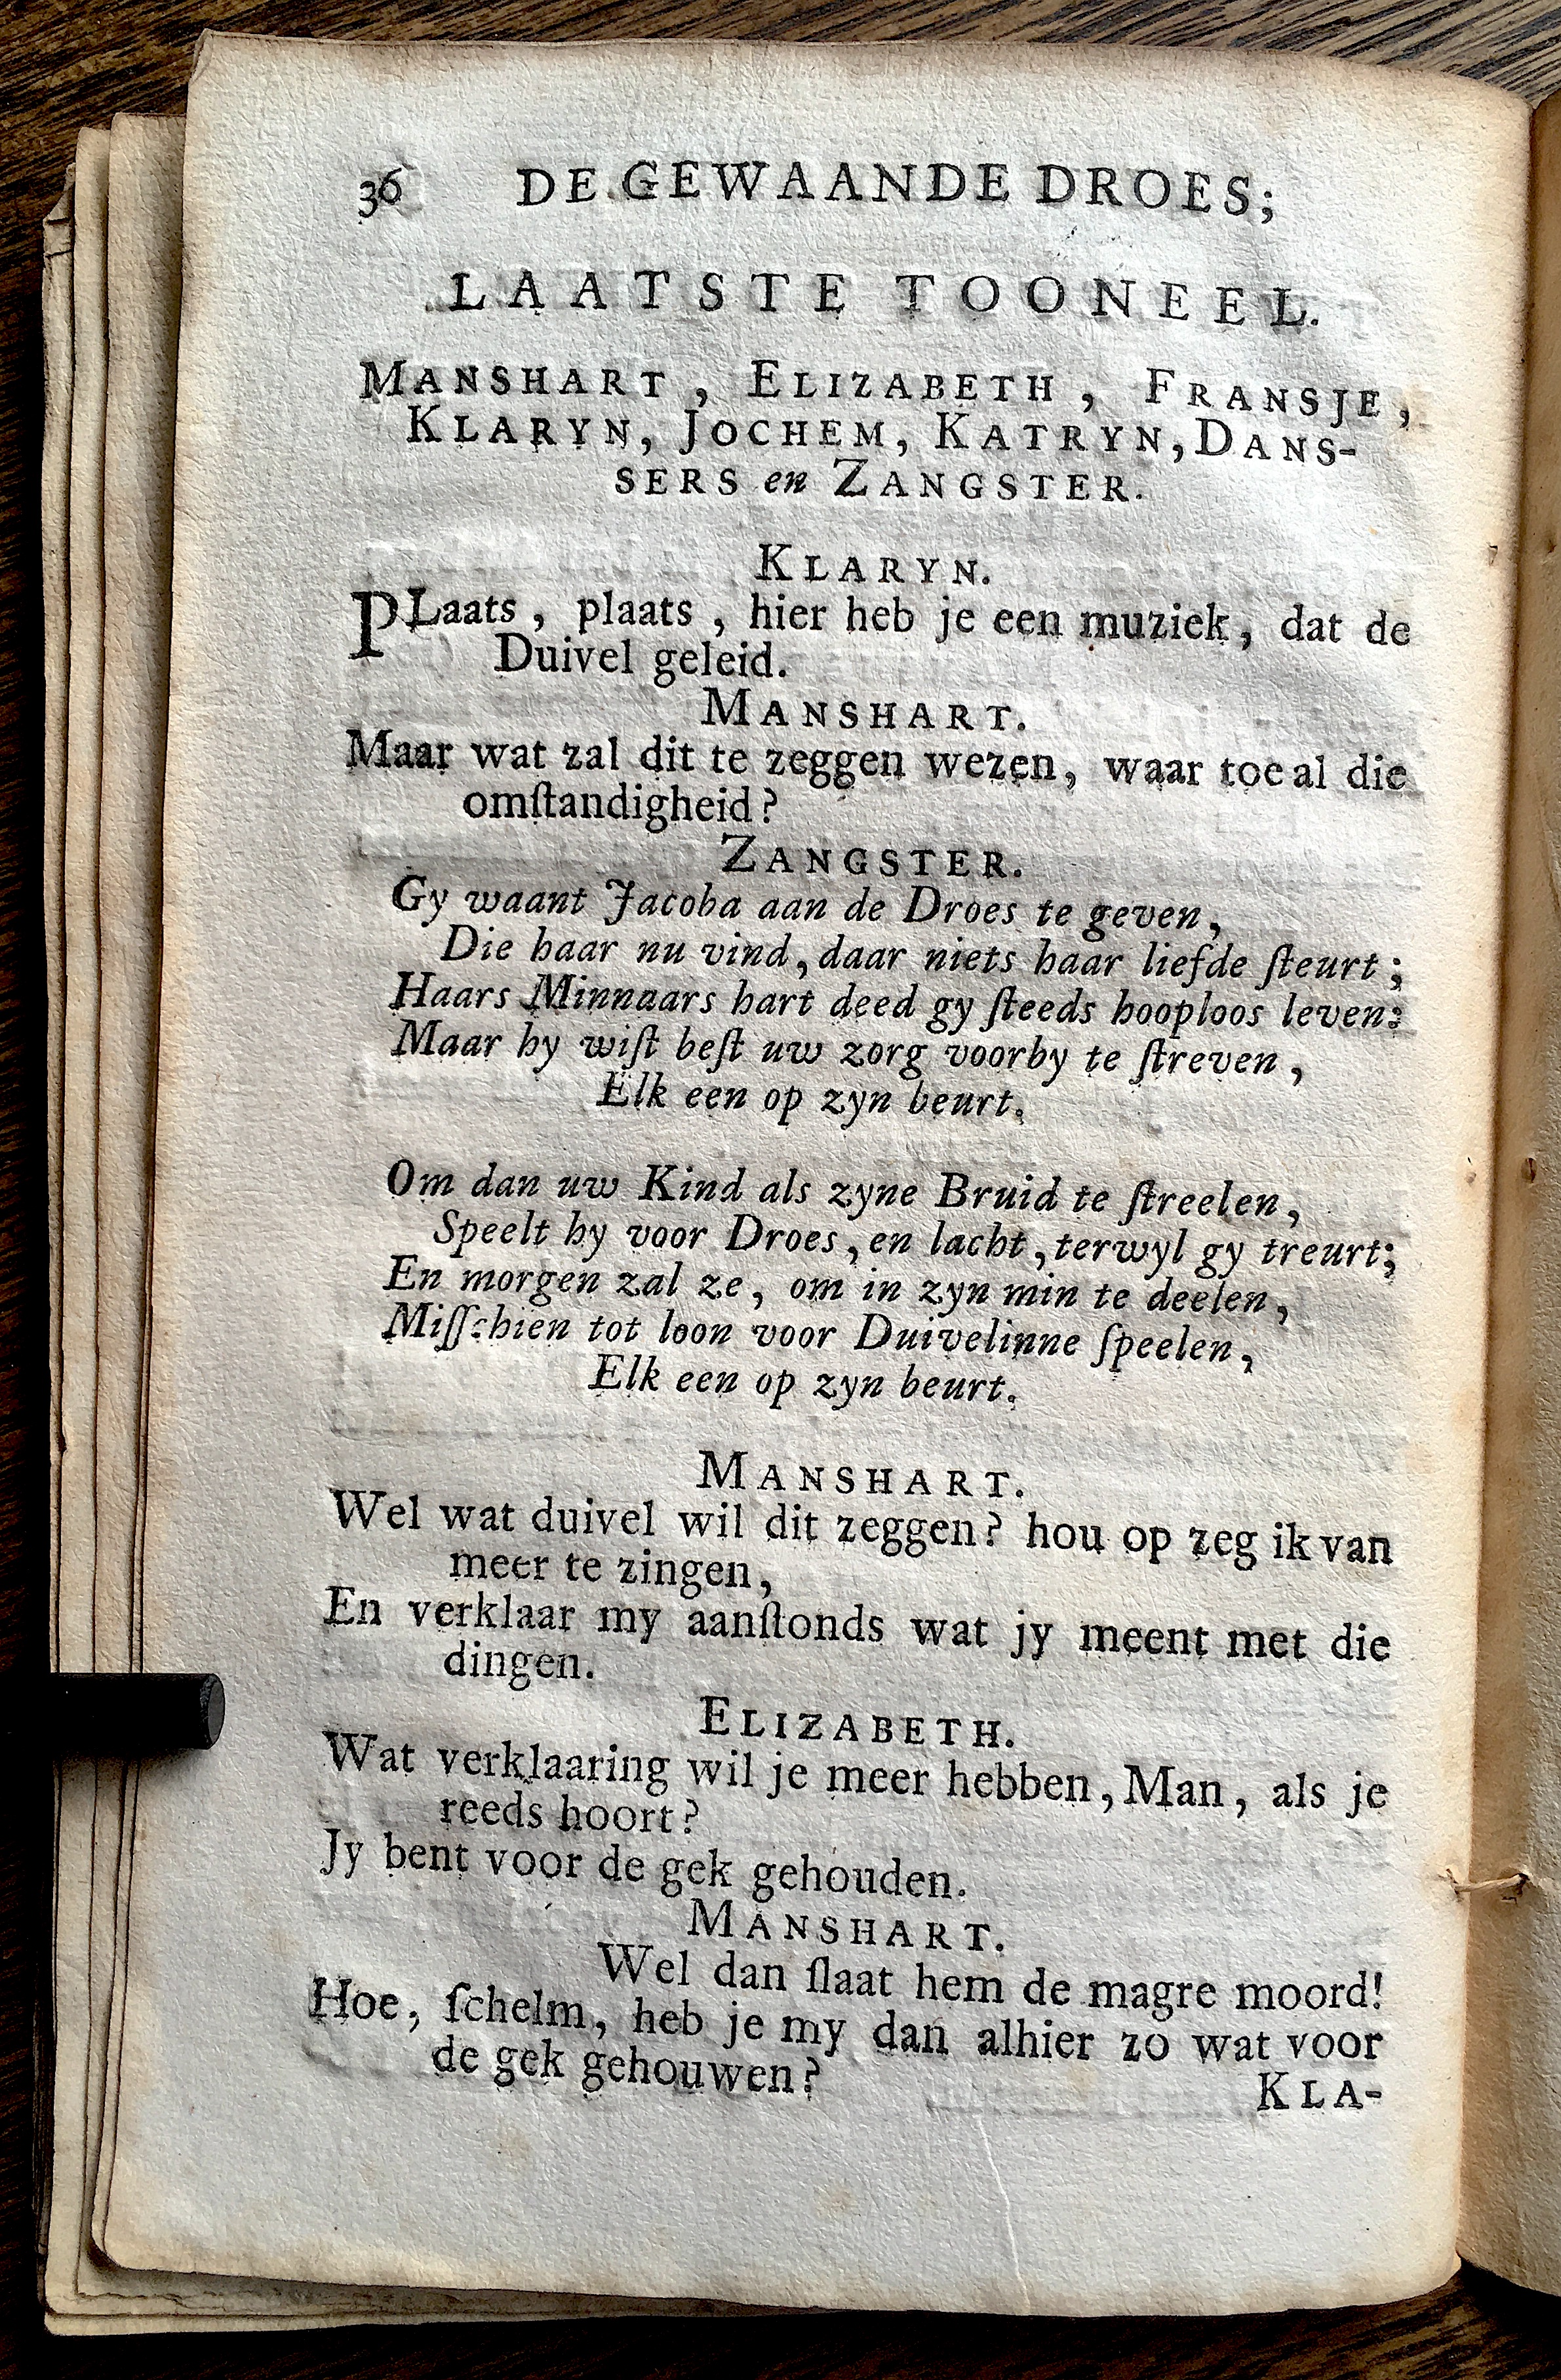 36 DE GEWAANDE DROES;
LAATSTE TOONEEL.
MANSHART, ELIZABETH, FRANSJE,
KLARYN, JOCHEM, KATRYN, DANS-
SERS en ZANGSTER.
KLARYN.
PLaats, plaats, hier heb je een muziek, dat de
Duivel geleid.
MANSHART.
Maar wat zal dit te zeggen wezen, waar toe al die
omſtandigheid?
ZANGSTER.
Gy waant Jacoba aan de Droes te geven,
Die haar nu vind, daar niets haar liefde ſteurt;
Haars Minnaars hart deed gy ſteeds hooploos leven:
Maar hy wiſt beſt uw zorg voorby te ſtreven,
Elk een op zyn beurt.
Om dan uw Kind als zyne Bruid te ſtreelen,
Speelt hy voor Droes, en lacht, terwyl gy treurt;
En morgen zal ze, om in zyn min te deelen,
Miſſchien tot loon voor Duivelinne ſpeelen,
Elk een op zyn beurt.
MANSHART.
Wel wat duivel wil dit zeggen? hou op zeg ik van
meer te zingen,
En verklaar my aanſtonds wat jy meent met die
dingen.
ELIZABETH.
Wat verklaaring wil je meer hebben, Man, als je
reeds hoort?
Jy bent voor de gek gehouden.
MANSHART.
Wel dan ſlaat hem de magre moord!
Hoe, ſchelm, heb je my dan alhier zo wat voor
de gek gehouwen?
KLA-